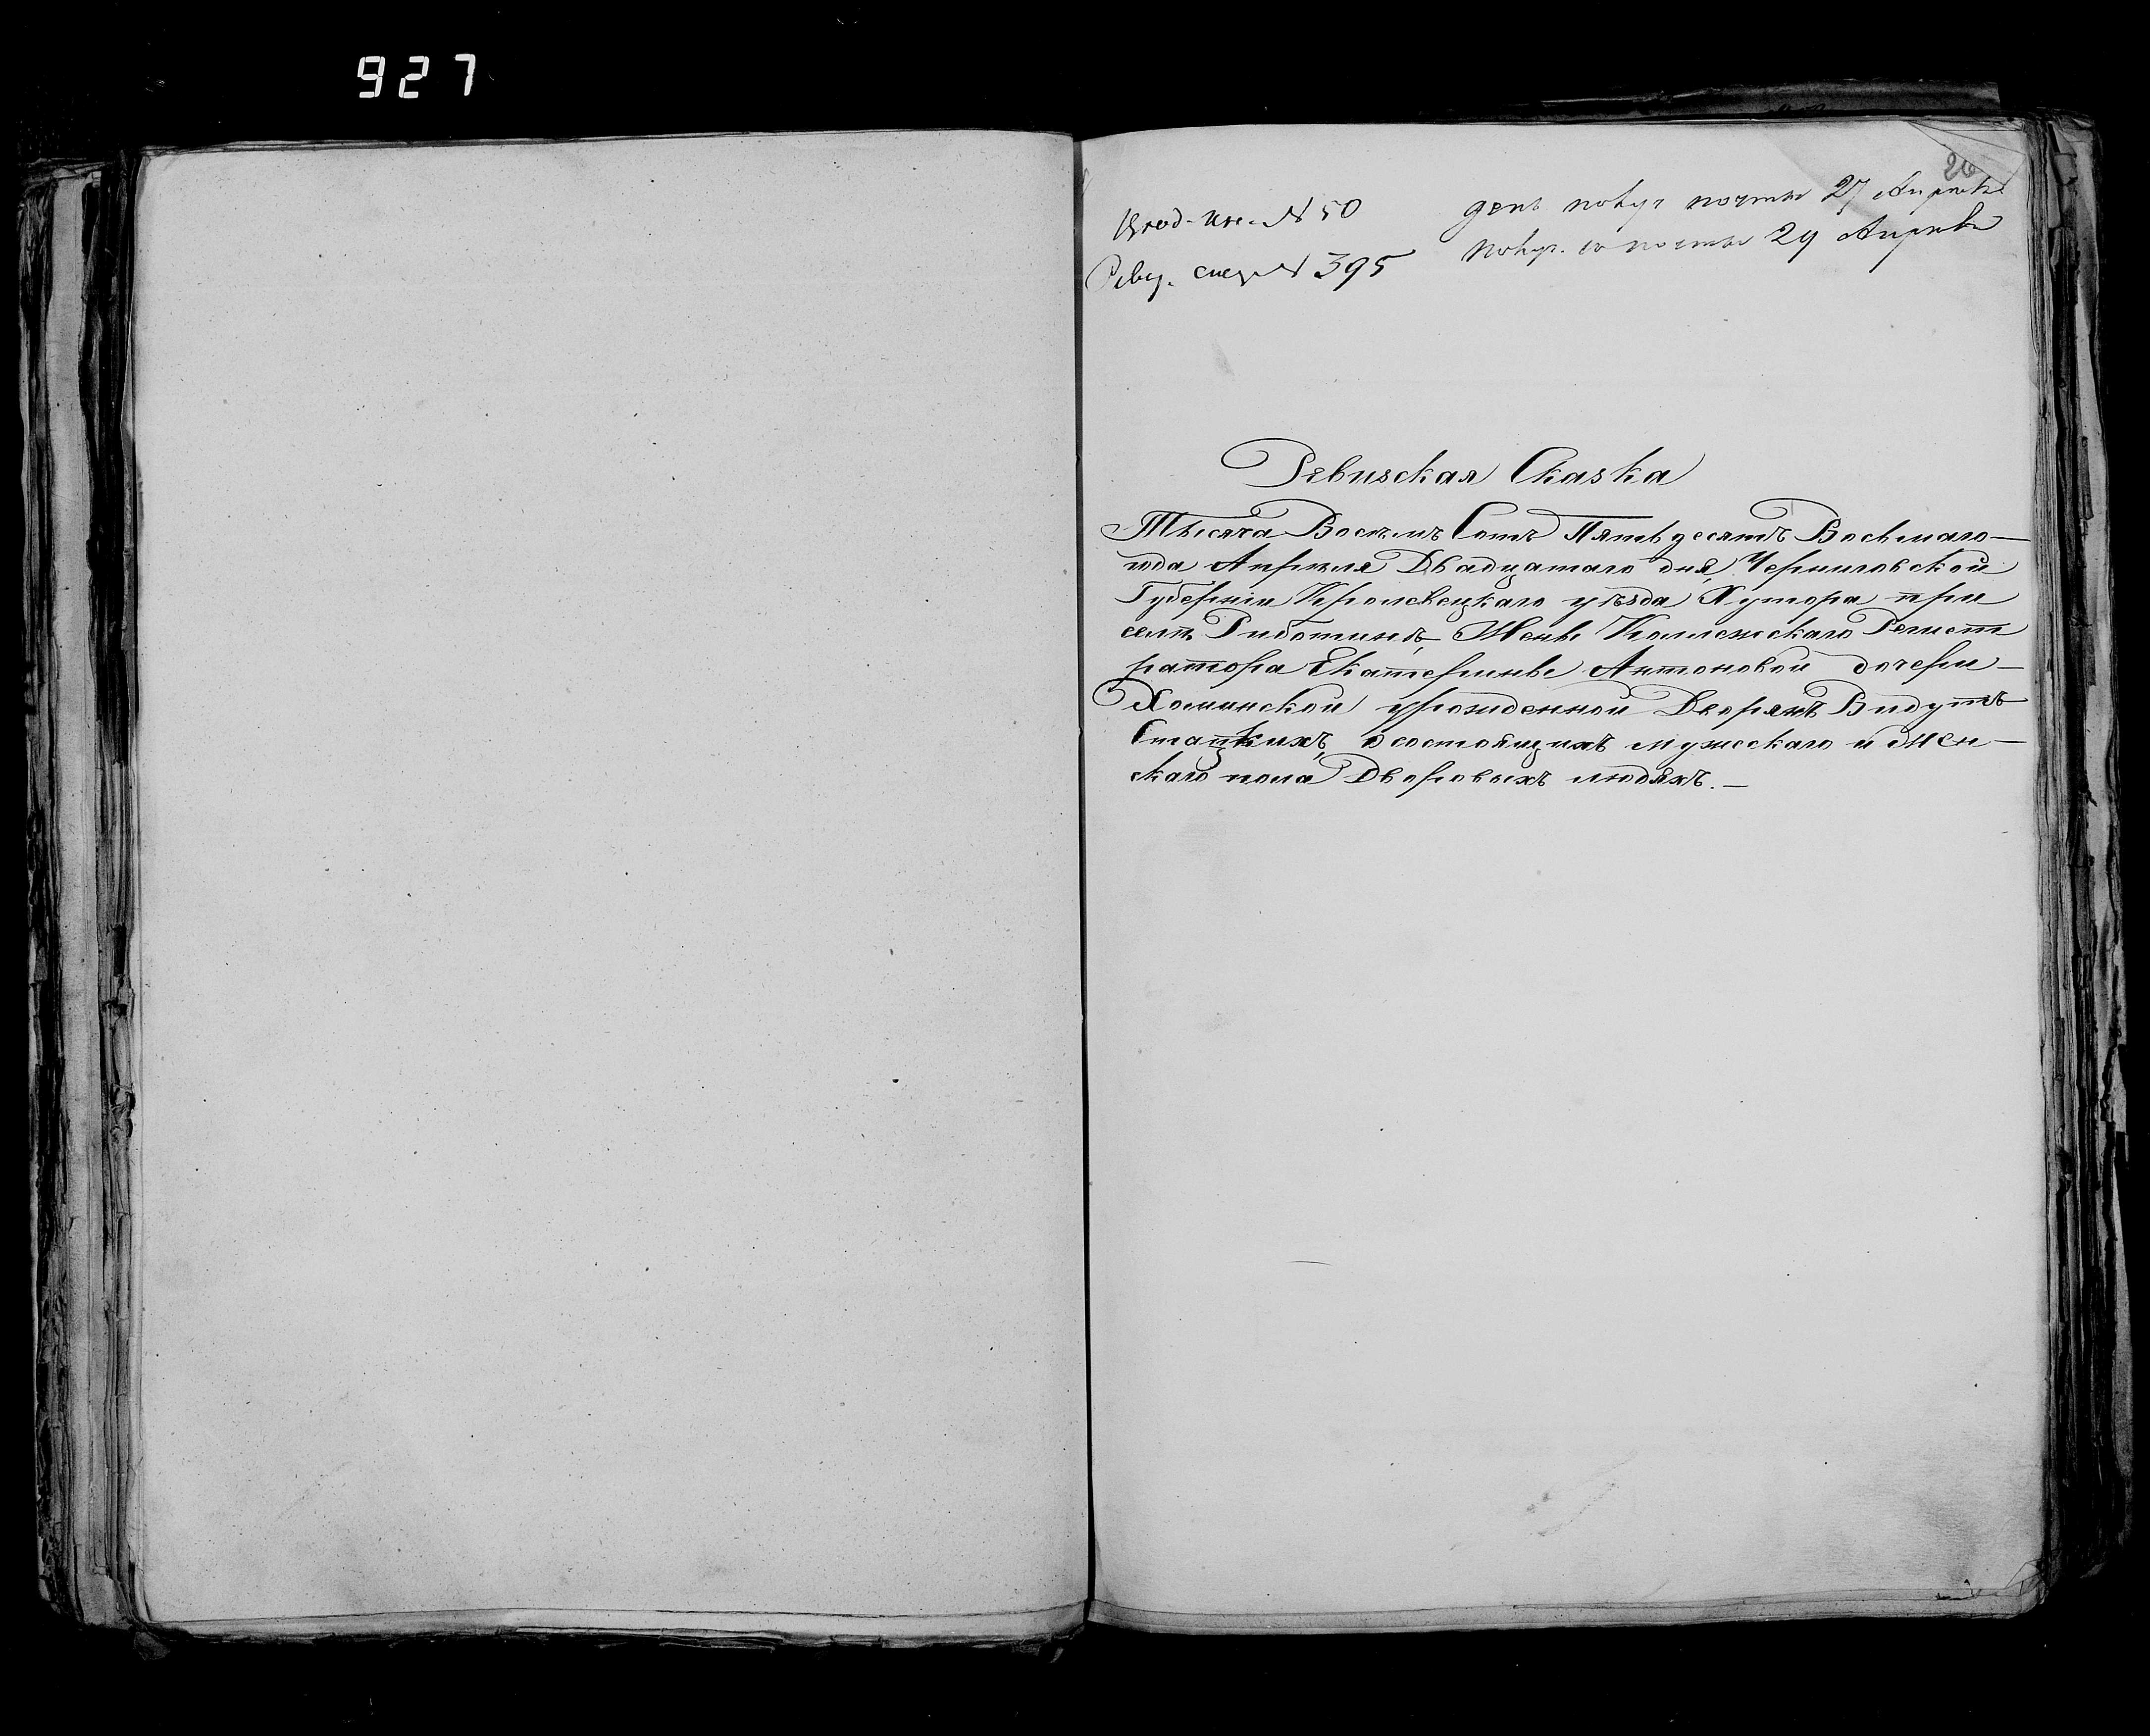 927
26
Вход. № 50
день получ почты 27 Апреля
Ревиз. № 395
получ. с почты 29 Апреля
Ревизская Сказка
Тысяча Восемь Сотъ Пятьдесятъ Восьмаго
года Апреля Двадцатаго дня, Черниговской
Губерніи Кролевецкаго уѣзда Хутора при
селѣ Риботинѣ, Жены Коллежскаго Регист
ратора Екатерины Антоновой дочери
Хоминской урожденной Дворянъ Видутъ
Стацкихъ, о состоящихъ мужескаго и жен
скаго пола Дворовыхъ людяхъ.